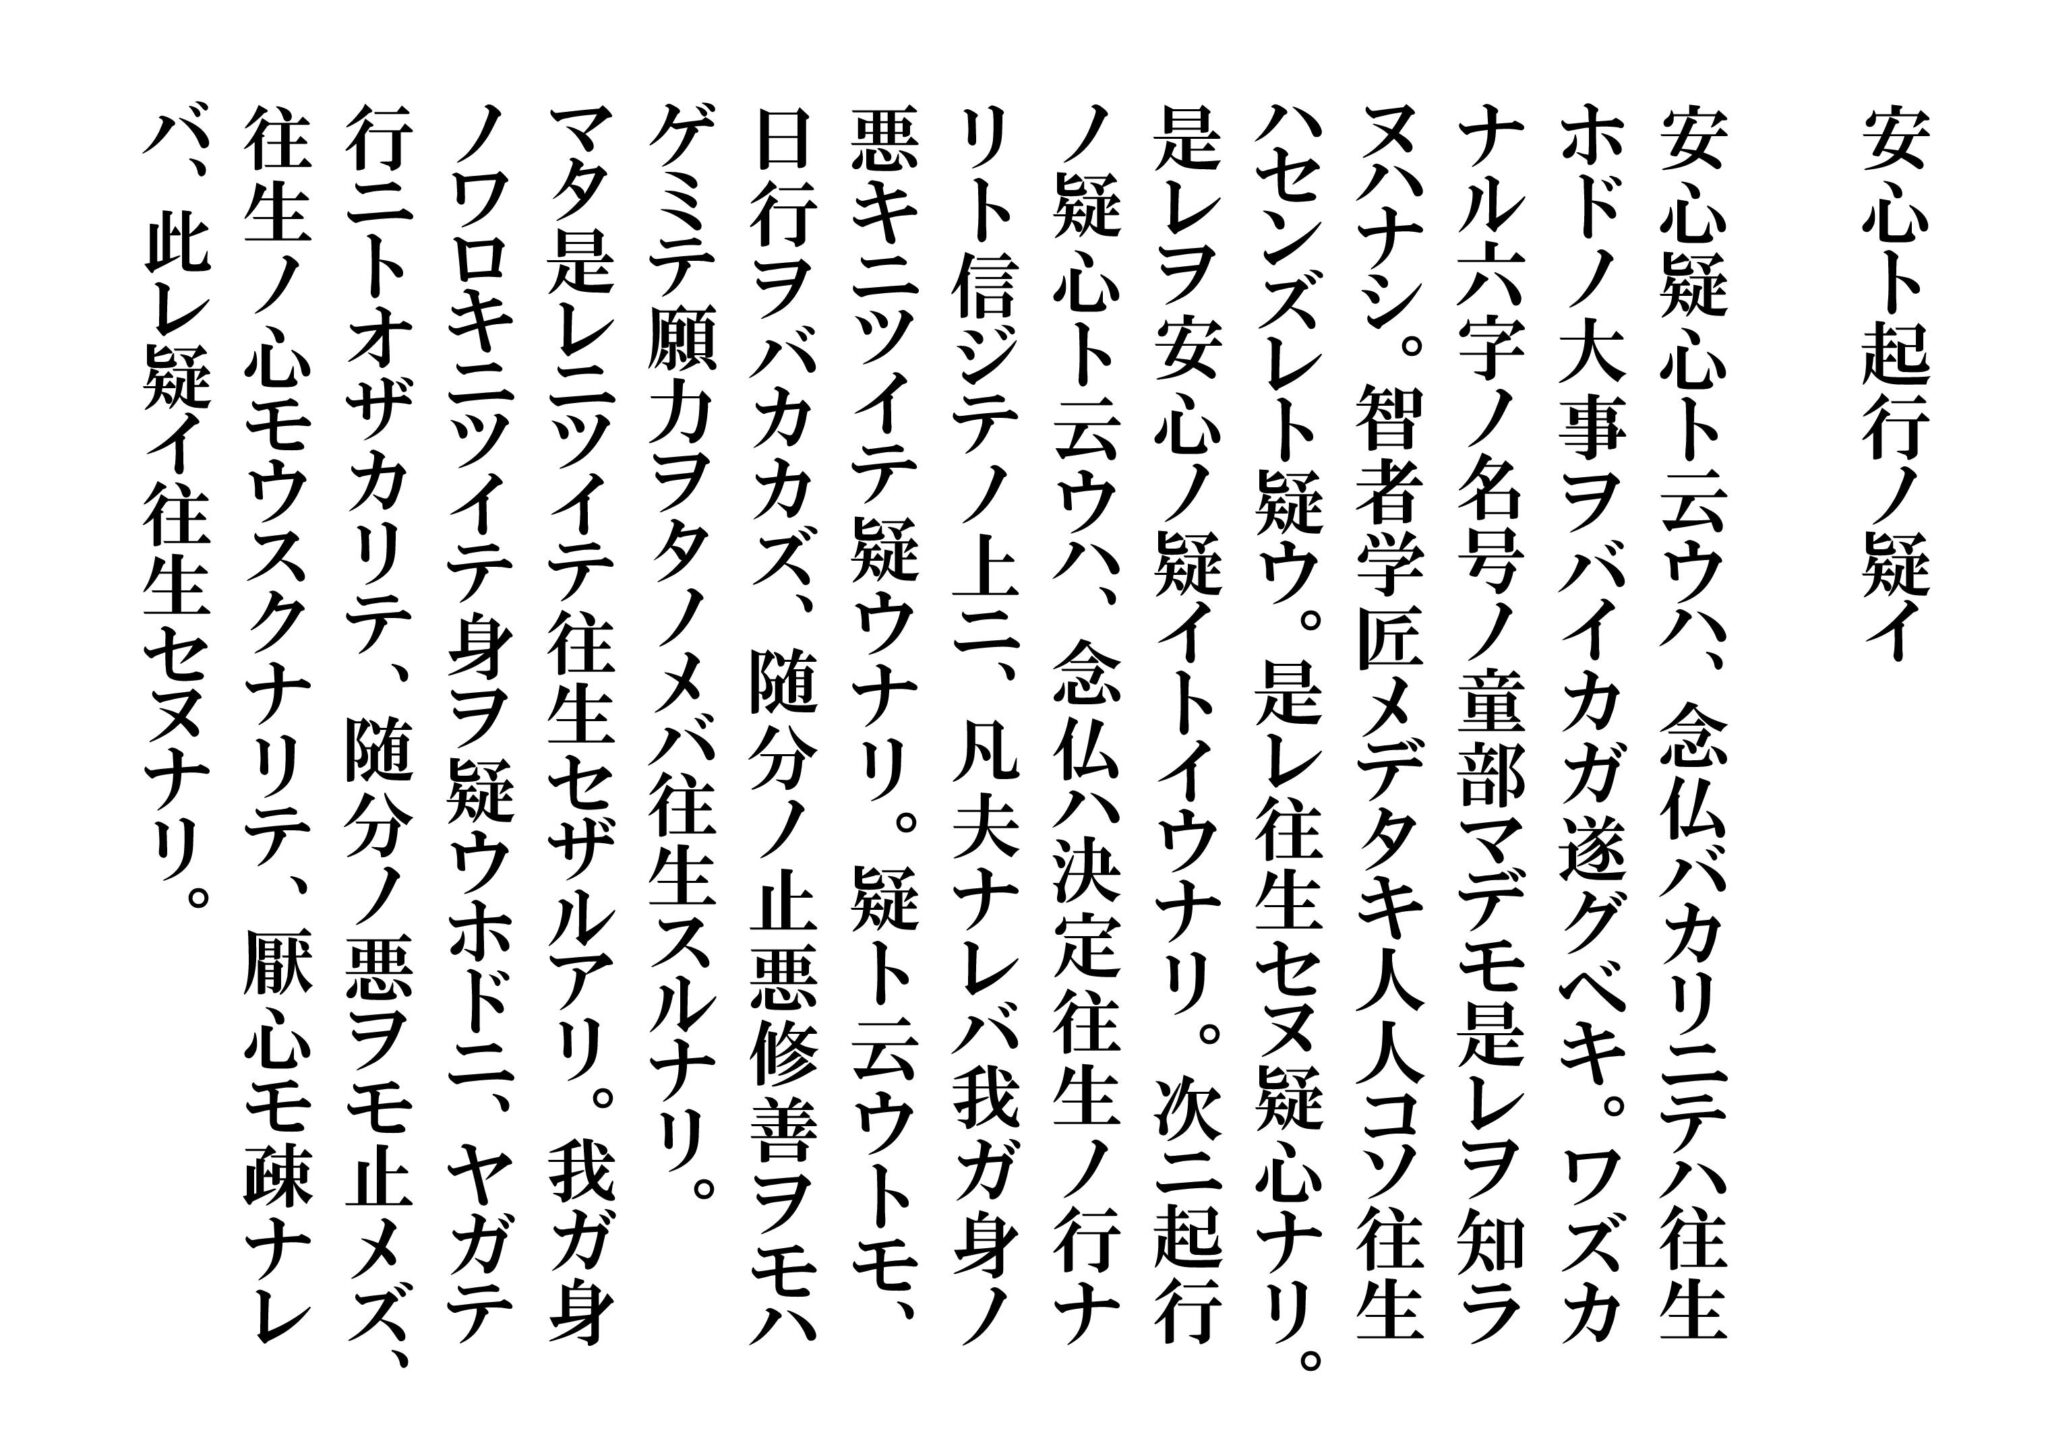 安心ト起行ノ疑イ
安心疑心ト云ウハ、念仏バカリニテハ往生
ホドノ大事ヲバイカガ遂グベキ。ワズカ
ナル六字ノ名号ノ童部マデモ是レヲ知ラ
ヌハナシ。智者学匠メデタキ人人コソ往生
ハセンズレト疑ウ。是レ往生セヌ疑心ナリ。
是レヲ安心ノ疑イトイウナリ。次ニ起行
ノ疑心ト云ウハ、念仏ハ決定往生ノ行ナ
リト信ジテノ上ニ、凡夫ナレバ我ガ身ノ
悪キニツイテ疑ウナリ。疑ト云ウトモ、
日行ヲバカカズ、随分ノ止悪修善ヲモハ
ゲミテ願力ヲタノメバ往生スルナリ。
マタ是レニツイテ往生セザルアリ。我ガ身
ノワロキニツイテ身ヲ疑ウホドニ、ヤガテ
行ニトオザカリテ、随分ノ悪ヲモ止メズ、
往生ノ心モウスクナリテ、厭心モ疎ナレ
バ、此レ疑イ往生セヌナリ。